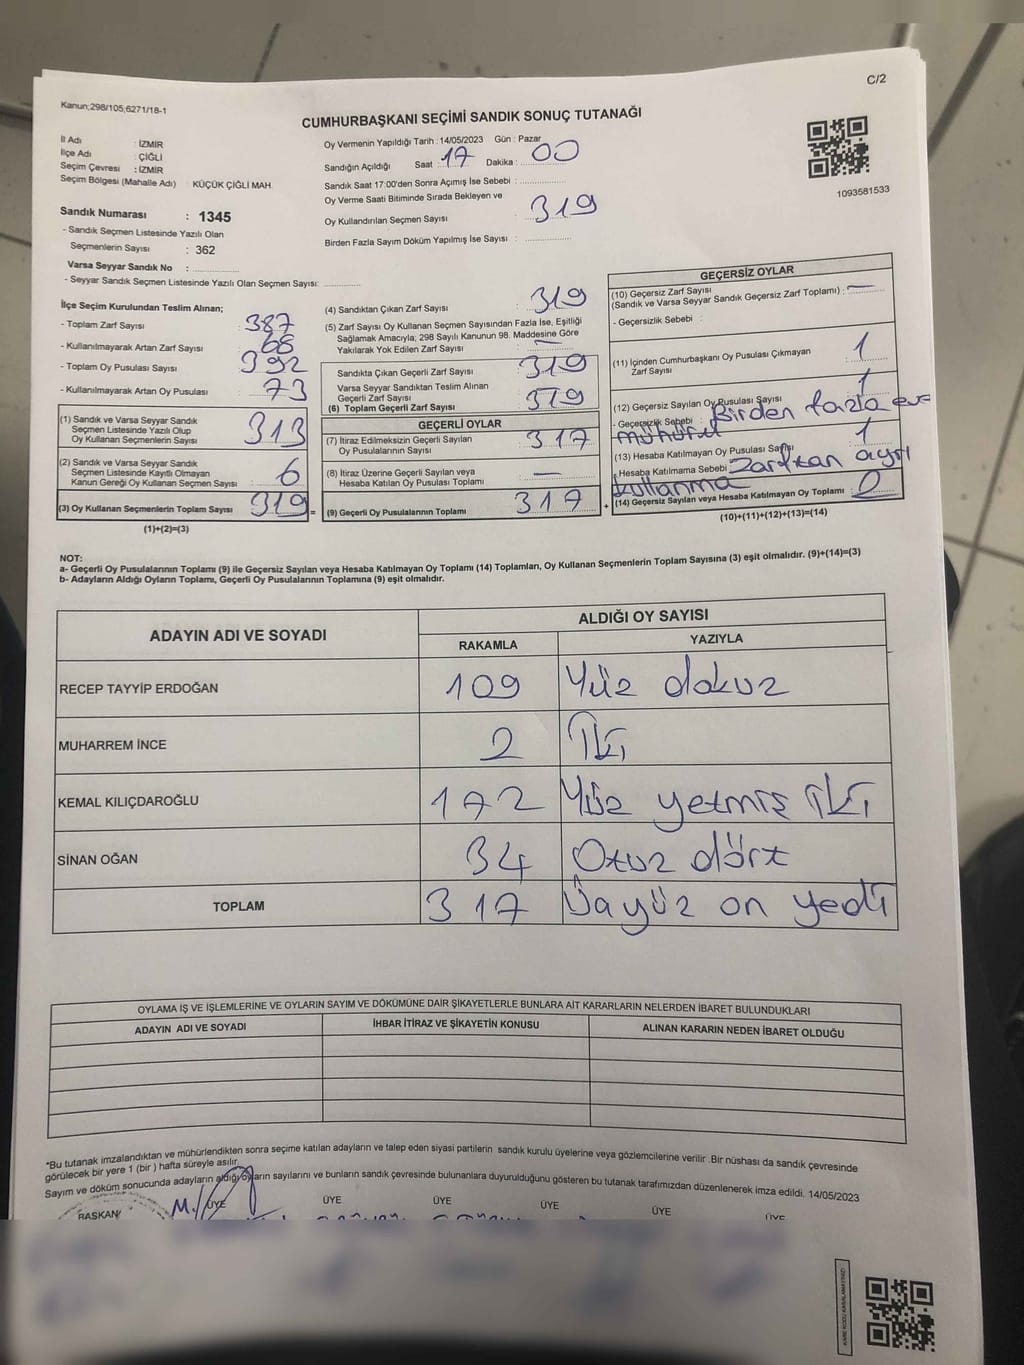 C/2
Kanun;298/105,6271/18-1
CUMHURBAŞKANI SEÇİMİ SANDIK SONUÇ TUTANAĞI
İl Adı : İZMİR
İlçe Adı : ÇİĞLİ
Seçim Çevresi : İZMİR
Seçim Bölgesi (Mahalle Adı) : KÜÇÜK ÇİĞLİ MAH.
Sandık Numarası : 1345
- Sandık Seçmen Listesinde Yazılı Olan
Seçmenlerin Sayısı : 362
Varsa Seyyar Sandık No :
- Seyyar Sandık Seçmen Listesinde Yazılı Olan Seçmen Sayısı:
Oy Vermenin Yapıldığı Tarih : 14/05/2023 Gün : Pazar
Sandığın Açıldığı Saat : 17 Dakika : 00
Sandık Saat 17:00'den Sonra Açımış İse Sebebi :
Oy Verme Saati Bitiminde Sırada Bekleyen ve
Oy Kullandırılan Seçmen Sayısı : 319
Birden Fazla Sayım Döküm Yapılmış İse Sayısı :
1093581533
İlçe Seçim Kurulundan Teslim Alınan;
- Toplam Zarf Sayısı : 387
- Kullanılmayarak Artan Zarf Sayısı : 68
- Toplam Oy Pusulası Sayısı : 392
- Kullanılmayarak Artan Oy Pusulası : 73
(1) Sandık ve Varsa Seyyar Sandık
Seçmen Listesinde Yazılı Olup
Oy Kullanan Seçmenlerin Sayısı : 313
(2) Sandık ve Varsa Seyyar Sandık
Seçmen Listesinde Kayıtlı Olmayan
Kanun Gereği Oy Kullanan Seçmen Sayısı : 6
(3) Oy Kullanan Seçmenlerin Toplam Sayısı : 319
(1)+(2)=(3)
(4) Sandıktan Çıkan Zarf Sayısı : 319
(5) Zarf Sayısı Oy Kullanan Seçmen Sayısından Fazla İse, Eşitliği
Sağlamak Amacıyla; 298 Sayılı Kanunun 98. Maddesine Göre
Yakılarak Yok Edilen Zarf Sayısı : —
Sandıkta Çıkan Geçerli Zarf Sayısı : 319
Varsa Seyyar Sandıktan Teslim Alınan
Geçerli Zarf Sayısı
(6) Toplam Geçerli Zarf Sayısı : 319
GEÇERLİ OYLAR
(7) İtiraz Edilmeksizin Geçerli Sayılan
Oy Pusulalarının Sayısı : 317
(8) İtiraz Üzerine Geçerli Sayılan veya
Hesaba Katılan Oy Pusulası Toplamı : —
(9) Geçerli Oy Pusulalarının Toplamı : 317
GEÇERSİZ OYLAR
(10) Geçersiz Zarf Sayısı
(Sandık ve Varsa Seyyar Sandık Geçersiz Zarf Toplamı) : —
- Geçersizlik Sebebi :
(11) İçinden Cumhurbaşkanı Oy Pusulası Çıkmayan
Zarf Sayısı : 1
(12) Geçersiz Sayılan Oy Pusulası Sayısı : 1
- Geçersizlik Sebebi : Birden fazla
mühürlü
(13) Hesaba Katılmayan Oy Pusulası Sayısı : 1
- Hesaba Katılmama Sebebi : Zarftan ayrı
kullanma
(14) Geçersiz Sayılan veya Hesaba Katılmayan Oy Toplamı : 2
(10)+(11)+(12)+(13)=(14)
NOT:
a- Geçerli Oy Pusulalarının Toplamı (9) ile Geçersiz Sayılan veya Hesaba Katılmayan Oy Toplamı (14) Toplamları, Oy Kullanan Seçmenlerin Toplam Sayısına (3) eşit olmalıdır. (9)+(14)=(3)
b- Adayların Aldığı Oyların Toplamı, Geçerli Oy Pusulalarının Toplamına (9) eşit olmalıdır.
ADAYIN ADI VE SOYADI
ALDIĞI OY SAYISI
RAKAMLA YAZIYLA
RECEP TAYYİP ERDOĞAN 109 Yüz dokuz
MUHARREM İNCE 2 İki
KEMAL KILIÇDAROĞLU 172 Yüz yetmiş iki
SİNAN OĞAN 34 Otuz dört
TOPLAM 317 Üçyüz on yedi
OYLAMA İŞ VE İŞLEMLERİNE VE OYLARIN SAYIM VE DÖKÜMÜNE DAİR ŞİKAYETLERLE BUNLARA AİT KARARLARIN NELERDEN İBARET BULUNDUKLARI
ADAYIN ADI VE SOYADI İHBAR İTİRAZ VE ŞİKAYETİN KONUSU ALINAN KARARIN NEDEN İBARET OLDUĞU
*Bu tutanak imzalandıktan ve mühürlendikten sonra seçime katılan adayların ve talep eden siyasi partilerin sandık kurulu üyelerine veya gözlemcilerine verilir .Bir nüshası da sandık çevresinde
görülecek bir yere 1 (bir ) hafta süreyle asılır.
Sayım ve döküm sonucunda adayların aldığı oyların sayılarını ve bunların sandık çevresinde bulunanlara duyurulduğunu gösteren bu tutanak tarafımızdan düzenlenerek imza edildi. 14/05/2023
BAŞKAN ÜYE ÜYE ÜYE ÜYE ÜYE ÜYE